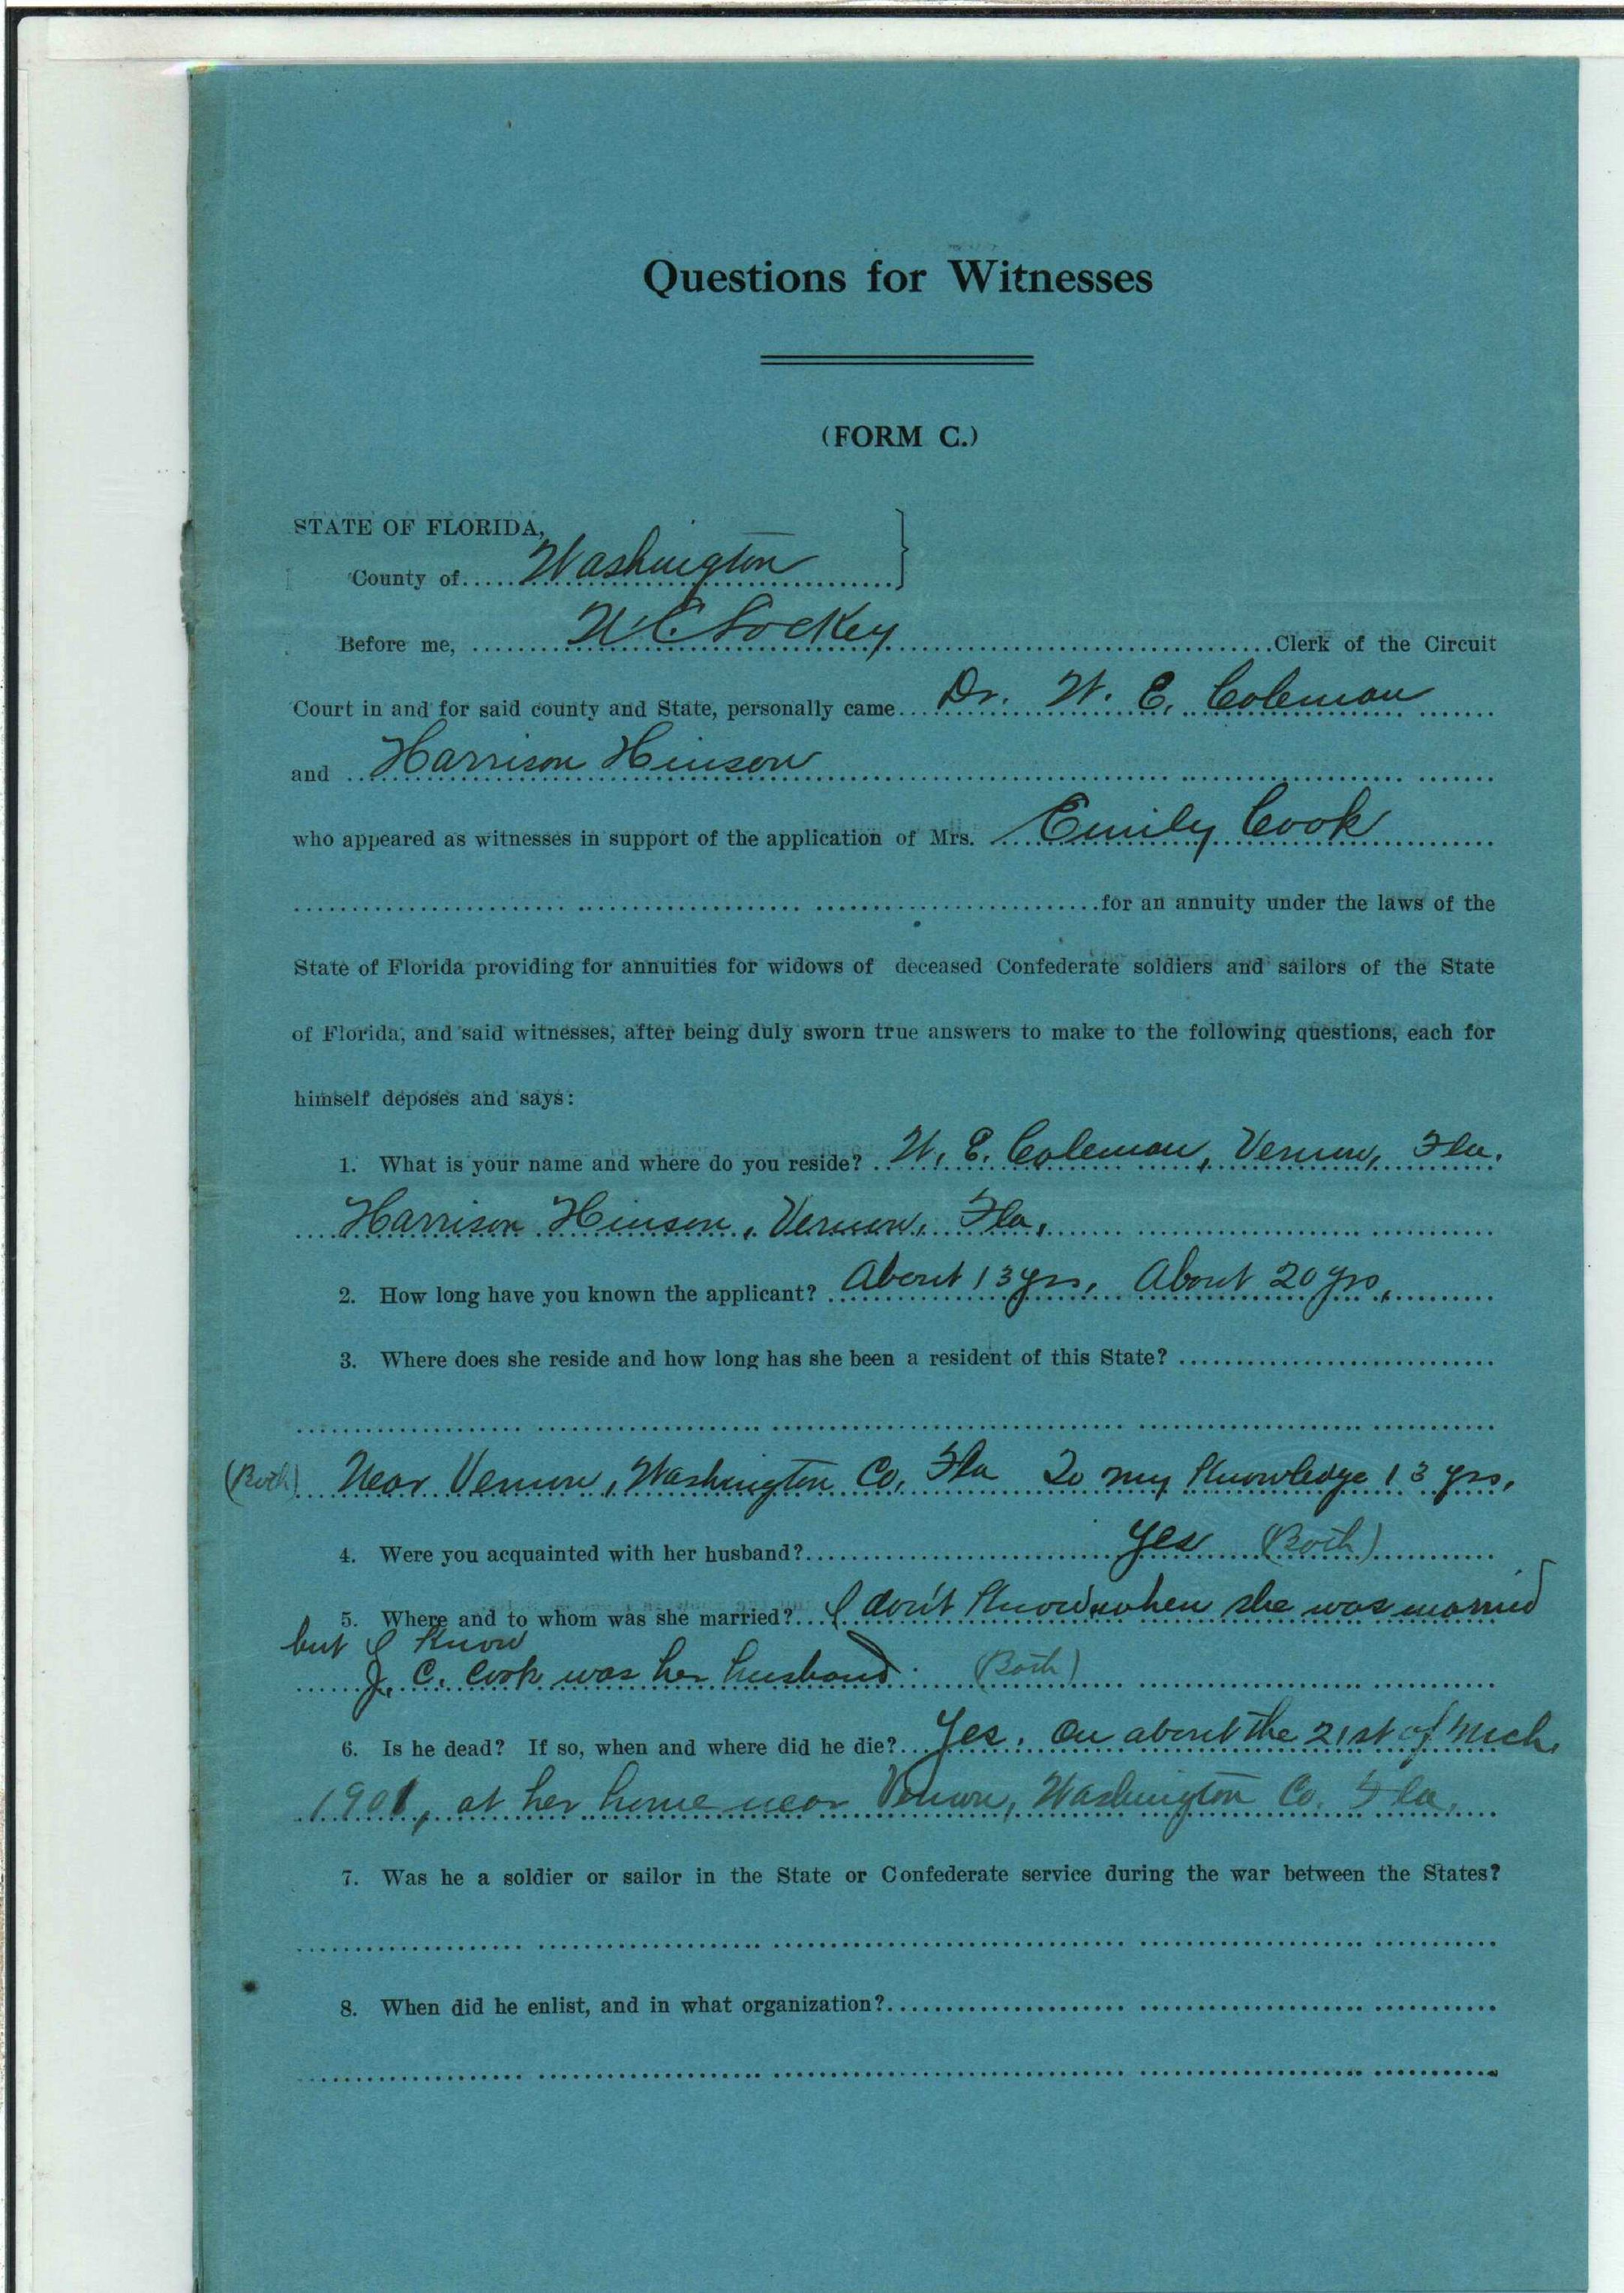 Questions for Witnesses
(FORM C.)
STATE OF FLORIDA,
County of Washington
Before me, W C Lockey Clerk of the Circuit
Court in and for said county and State, personally came Dr. W. E. Coleman
and Harrison Hinson
who appeared as witnesses in support of the application of Mrs. Emily Cook
for an annuity under the laws of the
State of Florida providing for annuities for widows of deceased Confederate soldiers and sailors of the State
of Florida, and said witnesses, after being duly sworn true answers to make to the following questions, each for
himself deposes and says:
1. What is your name and where do you reside? W. E. Coleman, Vernon, Fla.
Harrison Hinson, Vernon, Fla.
2. How long have you known the applicant? About 13 yrs. About 20 yrs.
3. Where does she reside and how long has she been a resident of this State?
(Both) Near Vernon, Washington Co. Fla To my Knowledge 13 yrs.
4. Were you acquainted with her husband? Yes (Both)
5. Where and to whom was she married? I don't Know when she was married
but I Know
J. C. Cook was her husband. (Both)
6. Is he dead? If so, when and where did he die? Yes. On about the 21st of Mch.
1901, at her home near Vernon, Washington Co. Fla.
7. Was he a soldier or sailor in the State or Confederate service during the war between the States?
8. When did he enlist, and in what organization?